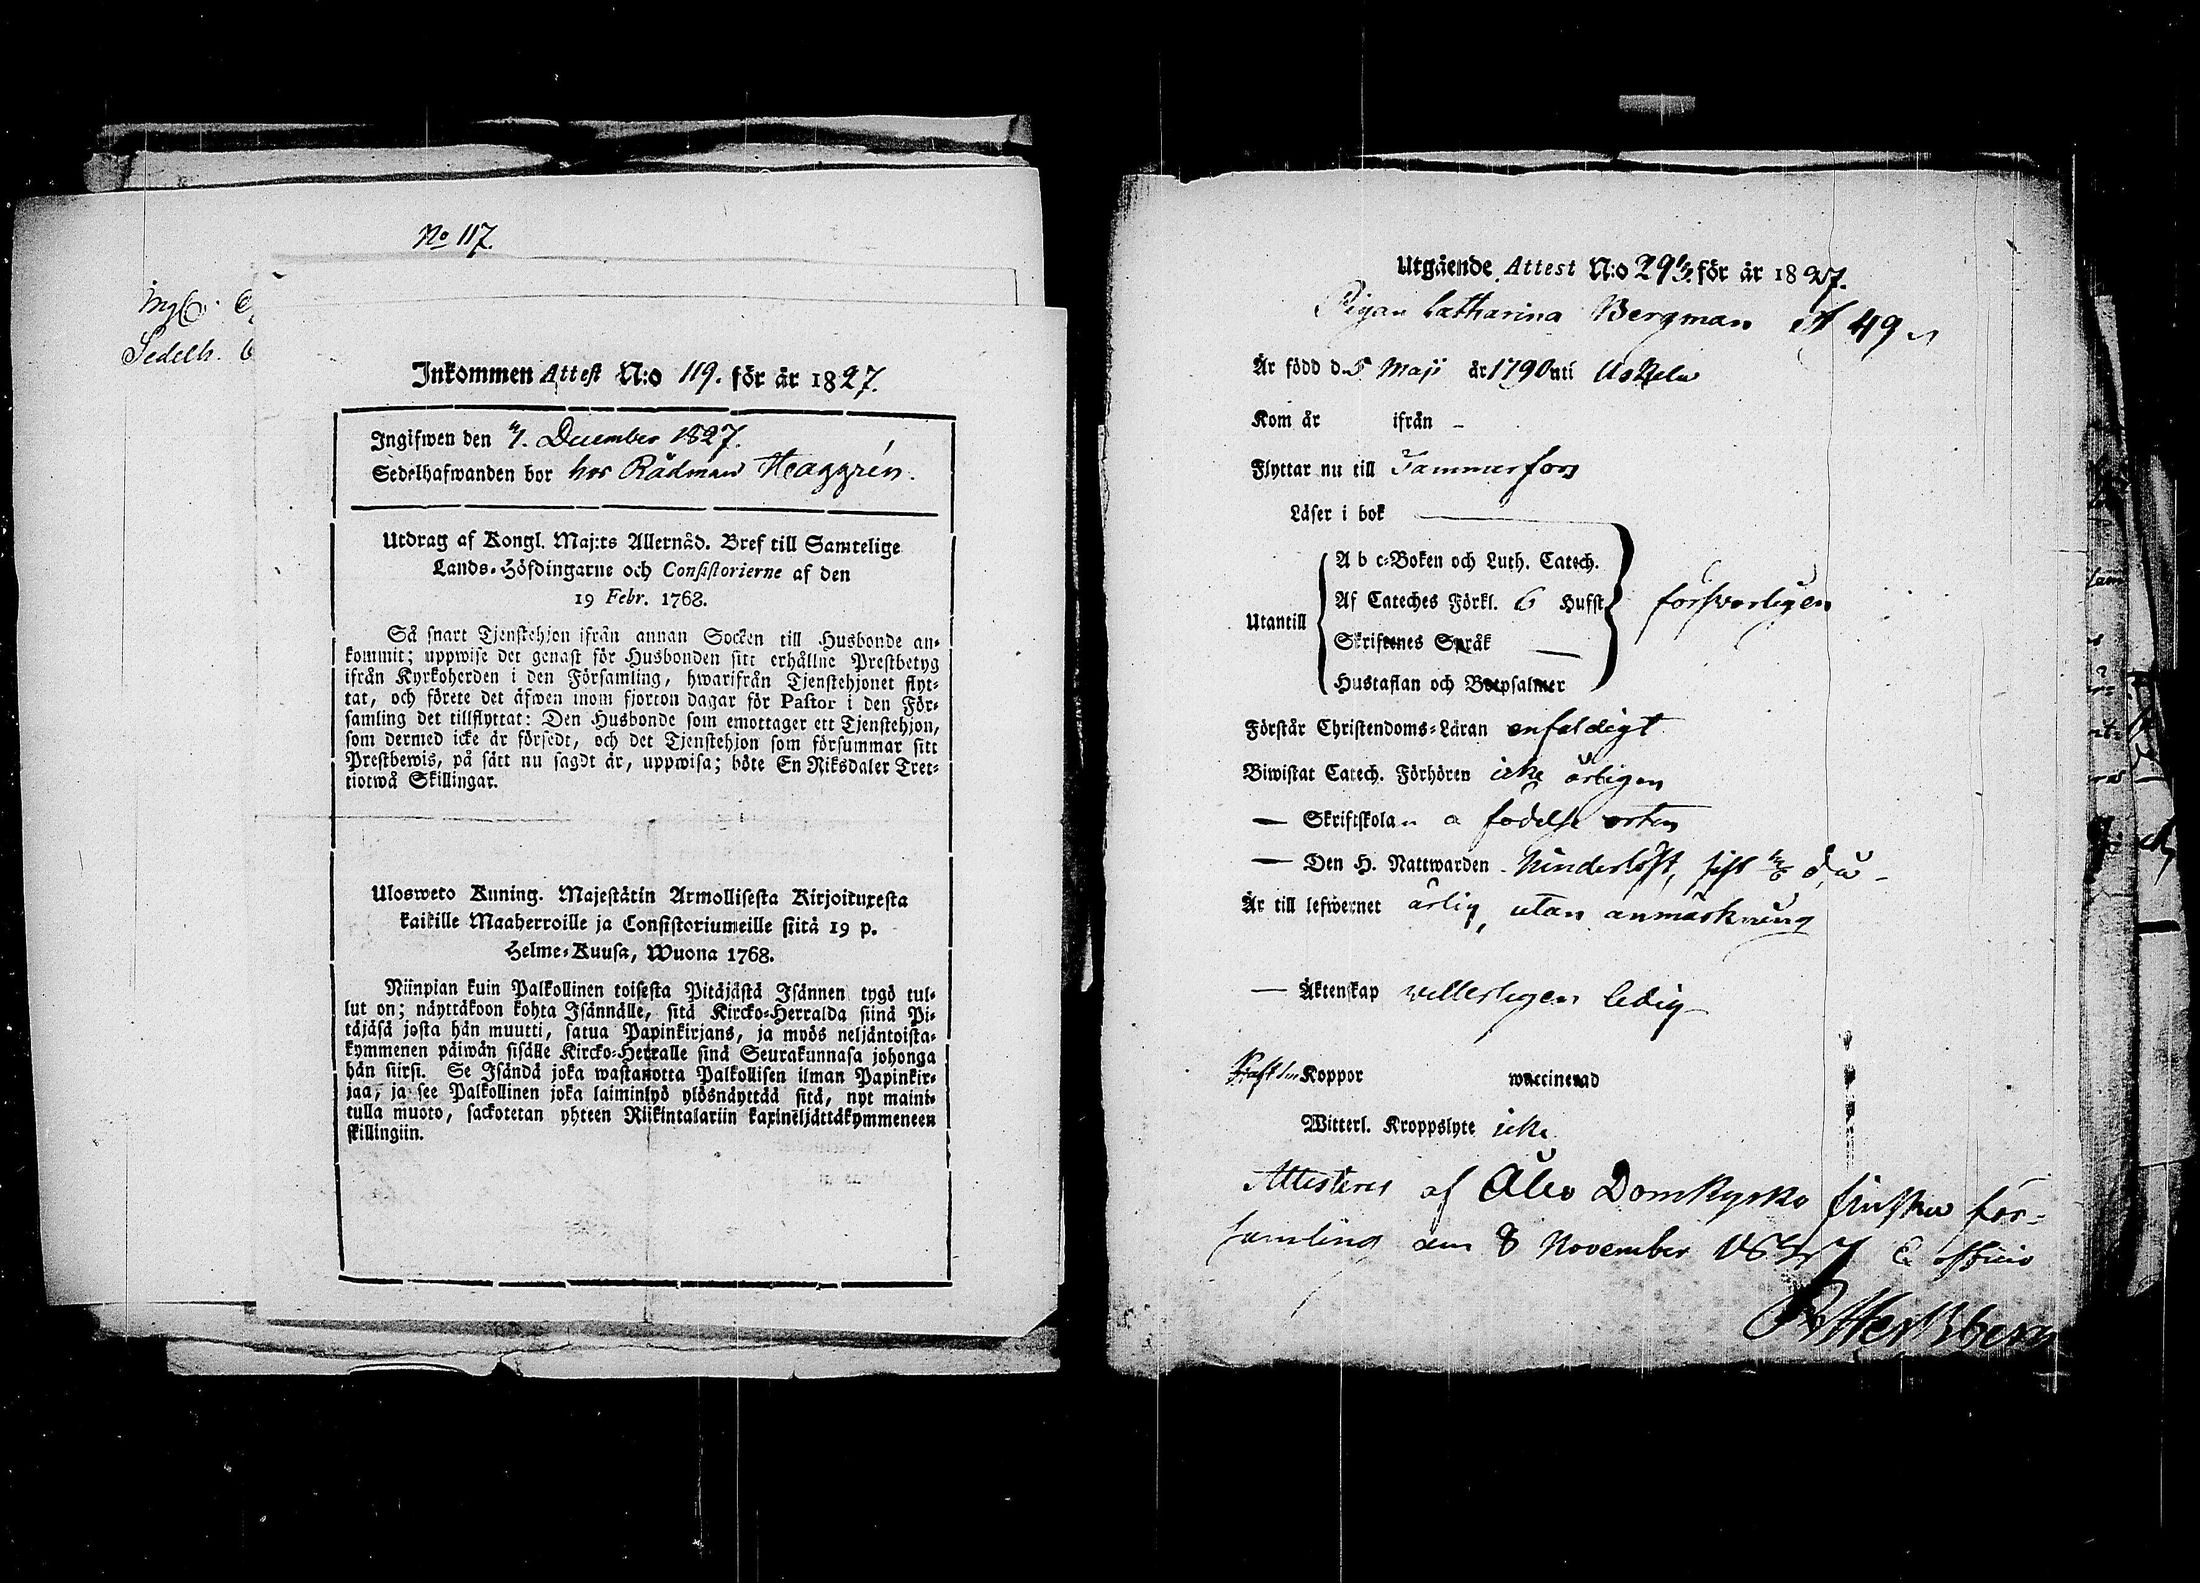 No 117.
Sedelh.
Inkommen Attest N:o 119. för år 1827.
Ingifwen den 4/1. December 1827.
Sedelhafwanden bor hos Rådman Haggrén.
Utdrag af Kongl. Maj:ts Allernåd. Bref till Samtelige
Lands-Höfdingarne och Consistorierne af den
19 Febr. 1768.
Så snart Tjenstehjon ifrån annan Socken till Husbonde an-
kommit; uppwise det genast för Husbonden sitt erhållne Prestbetyg
ifrån Kyrkoherden i den Församling, hwarifrån Tjenstehjonet flyt-
tat, och förete det äfwen inom fjorton dagar för Pastor i den För-
samling det tillflyttat: Den Husbonde som emottager ett Tjenstehjon,
som dermed icke är försedt, och det Tjenstehjon som försummar sitt
Prestbewis, på sätt nu sagdt är, uppwisa; böte En Riksdaler Tret-
tiotwå Skillingar.
Ulosweto Kuning. Majestätin Armollisesta Kirjoituxesta
kaikille Maaherroille ja Consistoriumeille siitä 19 p.
Helme-Kuusa, Wuona 1768.
Niinpian kuin Palkollinen toisesta Pitäjästä Isännen tygö tul-
lut on; näyttäkoon kohta Isännälle, sitä Kircko-Herralda siinä Pi-
täjäsä josta hän muutti, satua Papinkirjans, ja myös neljäntoista-
kymmenen päiwän sisälle Kircko-Herralle sinä Seurakunnasa johonga
hän siirsi. Se Isändä joka wastanotta Palkollisen ilman Papinkir-
jaa, ja see Palkollinen joka laiminlyö ylösnäyttää sitä, nyt maini-
tulla muoto, sackotetan yhteen Riikintalariin kaxineljättäkymmeneen
skillingiin.
Utgående Attest N:o 29 för år 1827.
Pigan Catharina Bergman 49
Är född d. 5 Maji år 1790 uti Uskela
Kom år ifrån -
Flyttar nu till Tammerfors
Läser i bok
A b c-Boken och Luth. Catech.
Af Cateches Förkl. 6 Hufst försvarligen
Utantill
Skriftenes Språk
Hustaflan och Botpsalmer
Förstår Christendoms-Läran enfaldigt
Biwistat Catech. Förhören icke årligen
— Skriftskolan å födelse orten
— Den H. Nattwarden hinderlöst, sist
Är till lefwernet ärlig, utan anmärkning
— Äktenskap vetterligen ledig
Haft Koppor waccinerad
Witterl. Kroppslyte icke
Attesteras af Åbo Domkyrko finska för-
samling den 8 November 1827 Ex officio